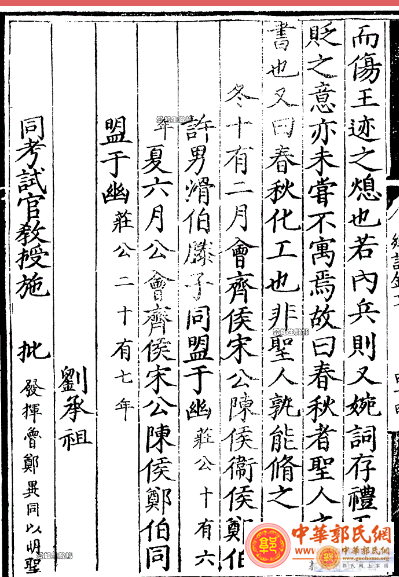 而傷王迹之熄也若內兵則又婉詞存禮
貶之意亦未嘗不寓焉故曰春秋者聖人
書也又曰春秋化工也非聖人孰能脩之
冬十有二月會齊侯宋公陳侯衞侯鄭伯
許男滑伯滕子同盟于幽莊公十有六
年夏六月公會齊侯宋公陳侯鄭伯同
盟于幽莊公二十有七年
劉承祖
同考試官敎授施 批 發揮魯鄭異同以明聖
中華郭氏網